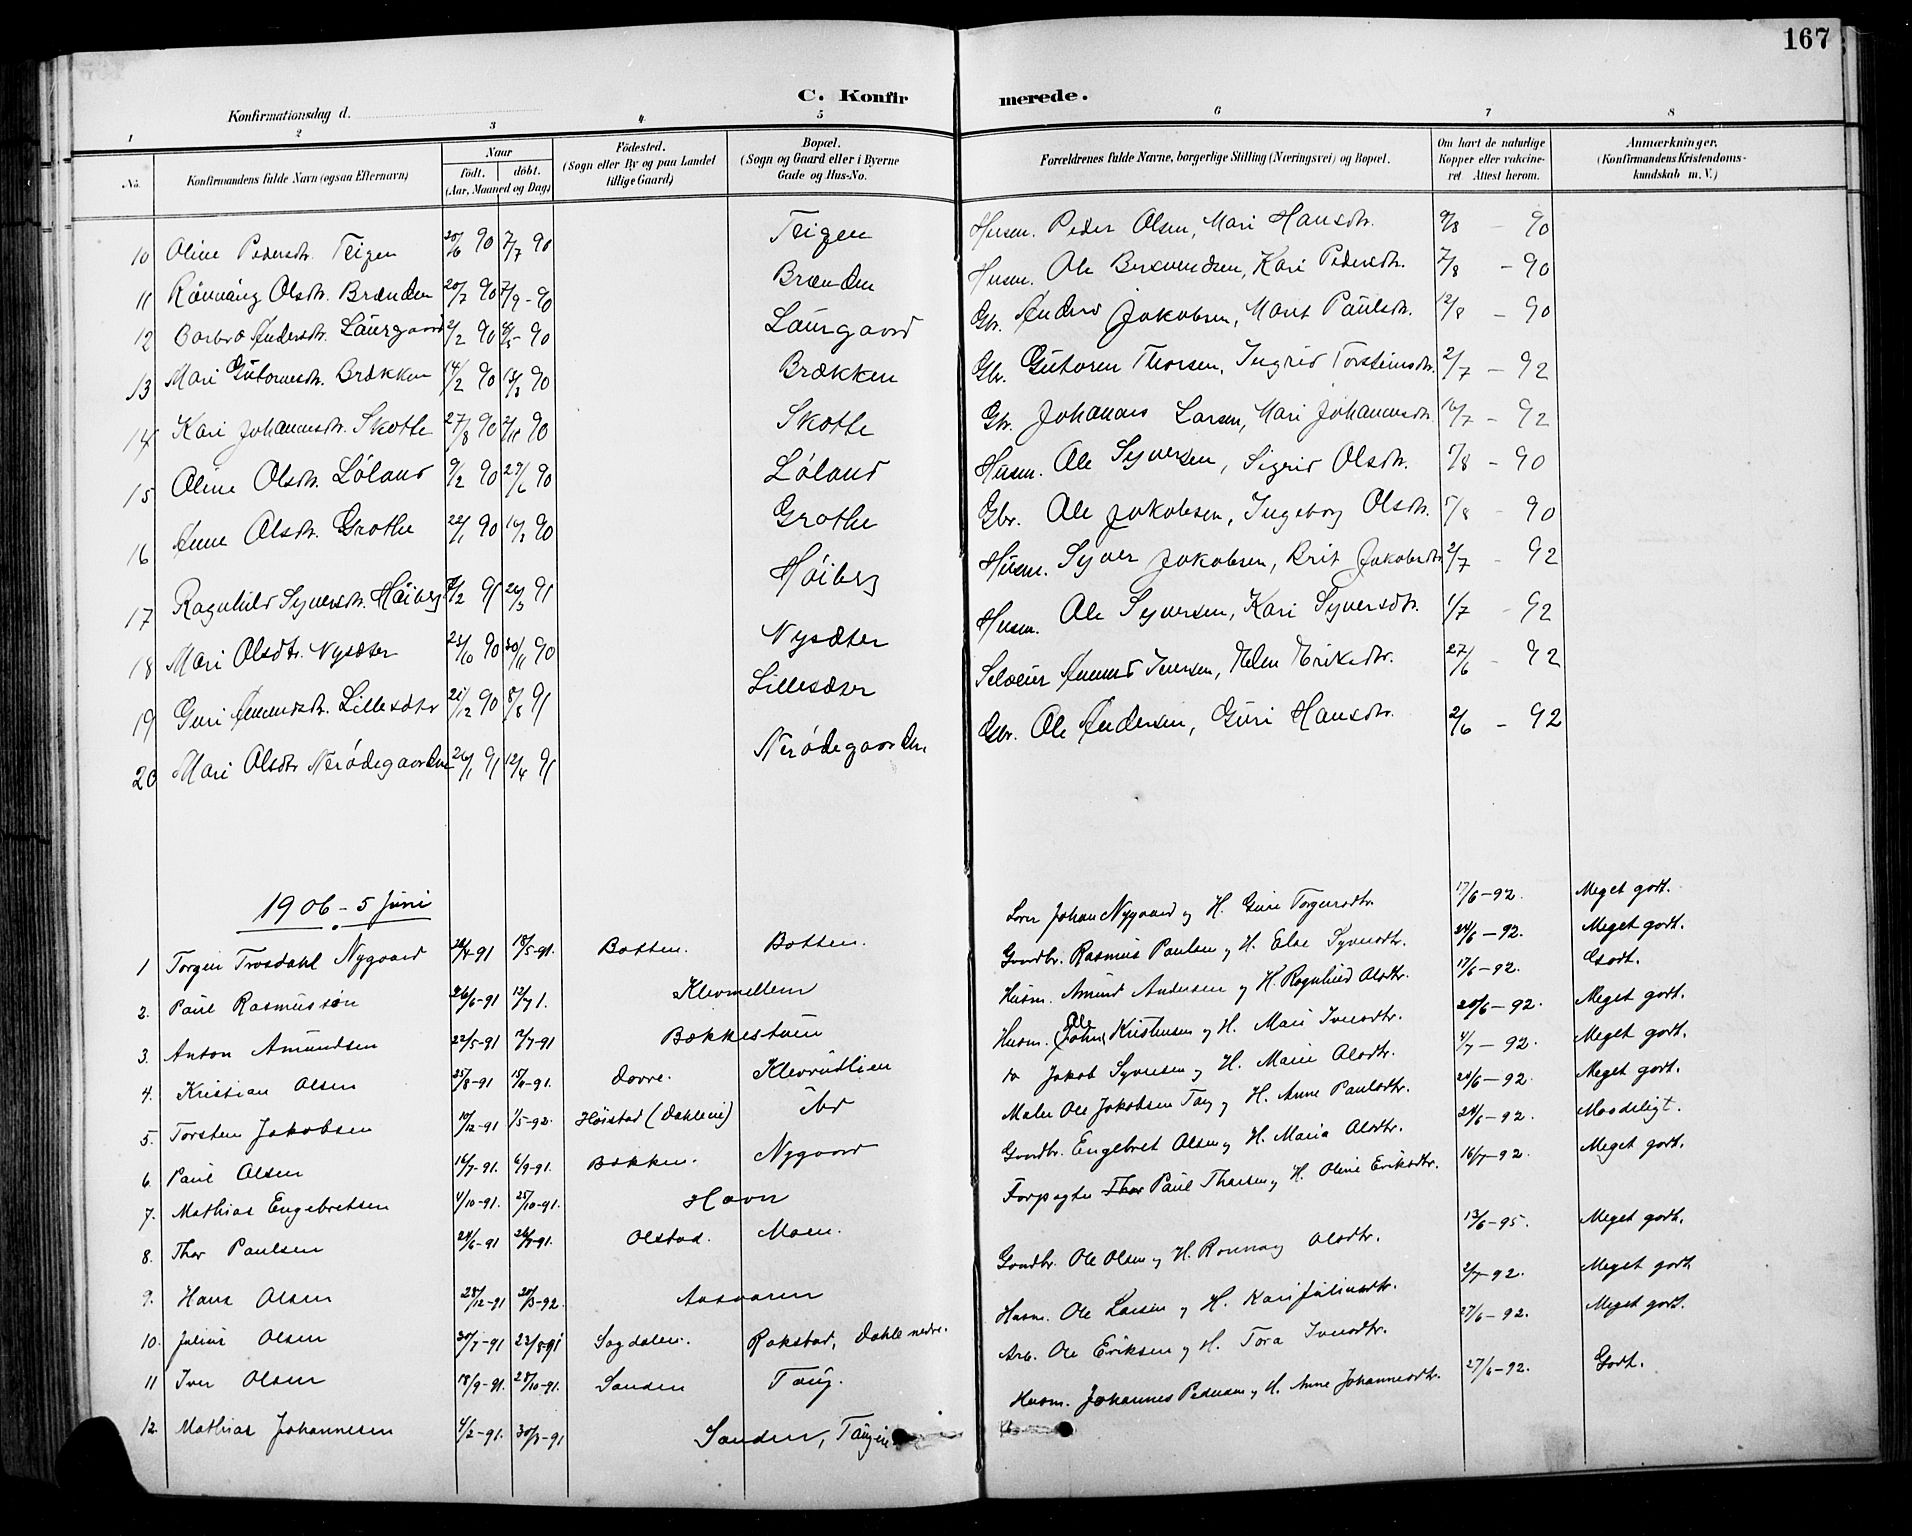 167
C. Konfir merede.
Konfirmationsdag d.
1 2 3 4 5 6 7 8
No. Konfirmandens fulde Navn (ogsaa Efternavn) Naar født. døbt. (Aar, Maaned og Dag) Fødested. (Sogn eller By og paa Landet tillige Gaard) Bopæl. (Sogn og Gaard eller i Byerne Gade og Hus-No. Forældrenes fulde Navne, borgerlige Stilling (Næringsvei) og Bopæl. Om havt de naturlige Kopper eller vakcineret. Attest herom. Anmærkninger. (Konfirmandens Kristendomskundskab m. V.)
10 Oline Pedersdtr. Teigen 20/6 90 7/7 90 Teigen Husm. Peder Olsen, Mari Hansdtr. 9/8 - 90
11 Rønnaug Olsdtr. Brænden 20/7 90 7/9 - 90 Brænden Husm. Ole Kari Pedersdtr. 7/8 - 90
12 Barbro Andersdtr. Laurgaard 2/2 90 /5 - 90 Laurgaard Gbr. Anders Jakobsen, Marit Paulsdtr. 12/8 - 90
13 Mari Gutormsdtr. Brækken 14/2 90 /3 90 Brækken Gbr. Gutorm Thorsen, Ingrid Torsteinsdtr. 2/7 - 92
14 Kari Johannesdtr. Skotte 27/8 90 2/11 90 Skotte Gbr. Johannes Larsen, Mari Johannesdtr. 16/7 - 92
15 Oline Olsdtr. Løland 9/2 90 29/6 90 Løland Husm. Ole Syversen, Sigrid Olsdtr. 7/8 - 90
16 Anne Olsdtr. Grothe 22/1 90 16/3 90 Grothe Gbr. Ole Jakobsen, Ingeborg Olsdtr. 5/8 - 90
17 Ragnhild Syversdtr. Høiberg /2 91 26/3 91 Høiberg Husm. Syver Jakobsen, Brit Jakobsdtr. 2/7 - 92
18 Mari Olsdtr. Nysæter 23/10 90 30/11 90 Nysæter Husm. Ole Syversen, Kari Syversdtr. 1/7 - 92
19 Guri Amundsdtr. Lillesæter 21/12 90 8/8 91 Lillesæter Selveier Amund Iversen, Eriksdtr. 27/6 - 92
20 Mari Olsdtr Nerødegaarden 26/1 91 12/4 91 Nerødegaarden Gbr. Ole Andersen, Guri Hansdtr. 2/6 - 92
1906 - 5 Juni
1 Torgeir Trosdahl Nygaard 26/4-91 18/5-91. Botten. Botten. Johan Nygaard og H. Guri Torgersdtr. 17/6-92. Meget godt.
2. Paul Rasmussøn 26/6-91 12/7 1. Klevmellem Gaardbr. Rasmus Paulsen og H. Else Syversdtr. 24/6-92. Meget godt.
3. Anton Amundsen 22/5-91 12/7-91 Bækkestuin Husm. Amund Andersen og H. Ragnhild Olsdtr. 17/6-92. Godt.
4. Kristian Olsen 25/8-91 Dovre. Klevrudlien Husm. (John) Ole Kristensen og H. Mari Iversdtr. 20/6-92. Meget godt.
5. Torsten Jakobsen 19/12-91 1/5-92. Høistad (Dahle ) do Jakob Syversen og H. Marie Olsdtr. 4/7-92. Meget godt.
6. Paul Olsen 16/7-91. 6/9-91. Bakken. Nygaard Maler Ole Jakobsen Taug og H. Anne Paulsdtr. 24/6-92. Meget godt.
7. Mathias Engebretsen 4/10-91. 25/10-91. Havn Gaardbr. Engebret Olsen og H. Maria Olsdtr. 24/6-92. Maadeligt.
8. Thor Paulsen 24/6-91 26/7-91. Olstad. Moen. Forpagter Thor Paul Thorsen og H. Oline Eriksdtr. 16/7-92. Meget godt.
9. Hans Olsen 28/12-91 20/3-92. Aasaaren Gaardbr. Ole Olsen og H. Rønnaug Olsdtr. 13/6-95. Meget godt.
10. Julius Olsen 30/7-91 23/8-91 Sagdalen. Rokstad, Dahle nedre. Husm. Ole Larsen og H. Kari Juliusdtr. 2/7-92. Meget godt
11 Iver Olsen 18/9-91. 25/10-91. Sanden Taug. Arb. Ole Eriksen og H. Tora Iversdtr. 27/6-92. Meget godt.
12. Mathias Johannesen 4/2-91. 30/3-91 Sanden, Husm. Johannes Pedersen og H. Anne Johannesdtr. 27/6-92. Godt.